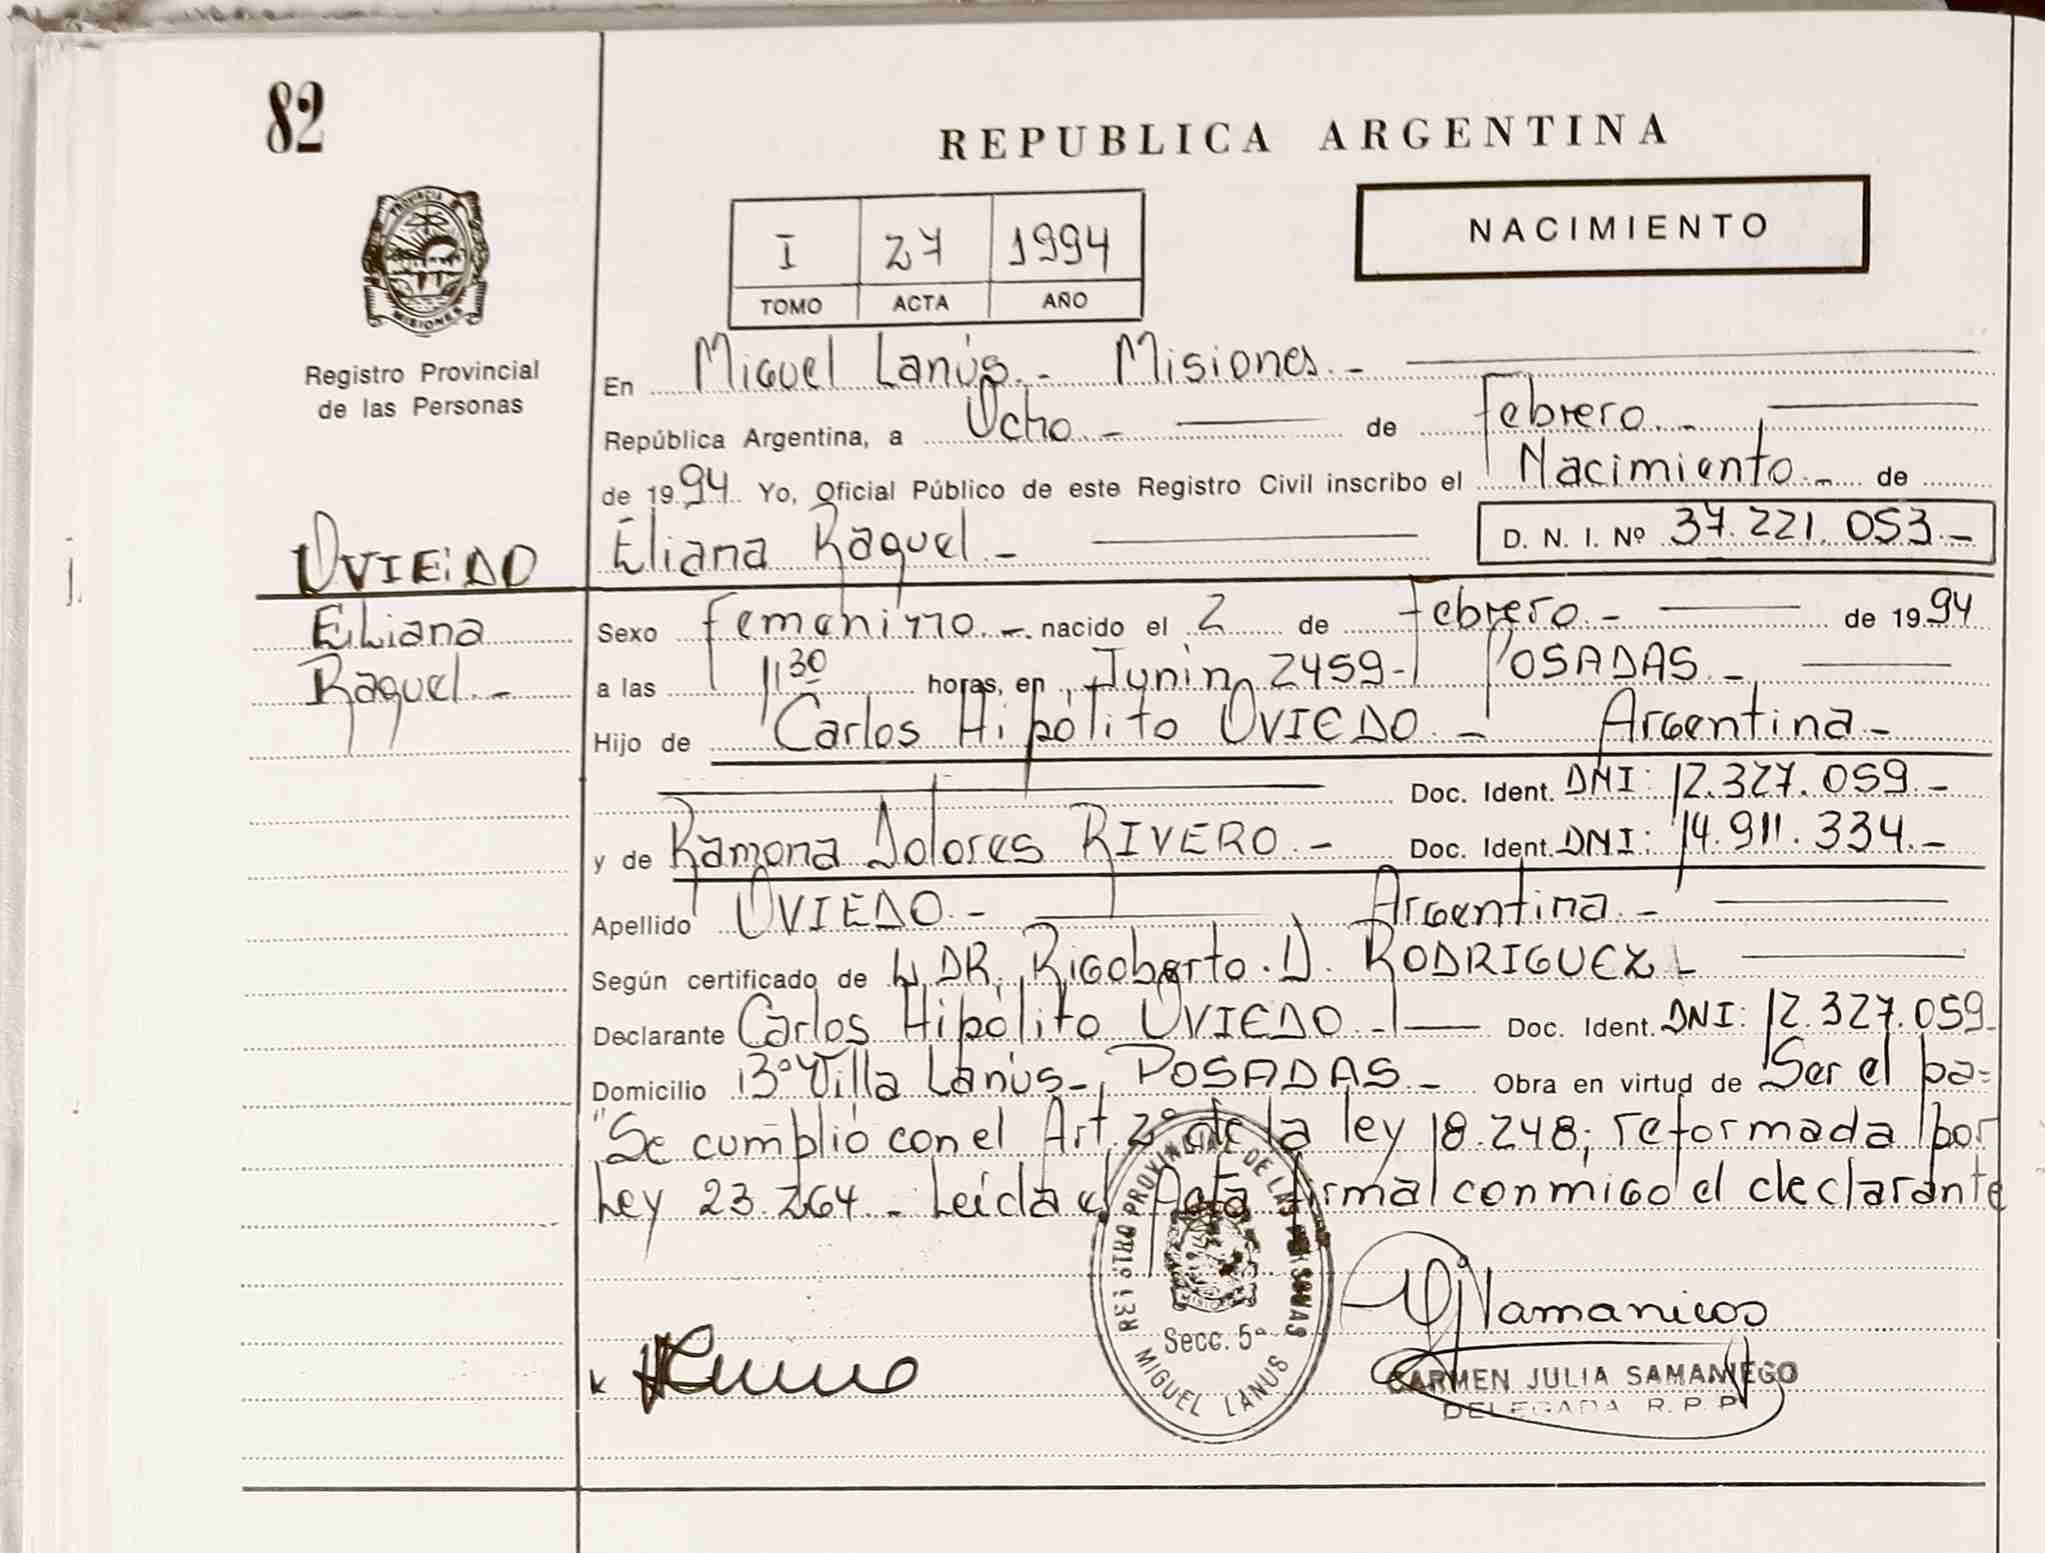 82
REPUBLICA ARGENTINA
NACIMIENTO
I 27 1994
TOMO ACTA AÑO
PROVINCIA DE MISIONES
Registro Provincial
de las Personas
OVIEDO
Eliana
Raquel.-
En Miguel Lanús.- Misiones.-
República Argentina, a Ocho.- de Febrero.-
de 1994 Yo, Oficial Público de este Registro Civil inscribo el Nacimiento.- de
Eliana Raquel.- D. N. I. Nº 37.221.053.-
Sexo Femenino.- nacido el 2 de Febrero.- de 1994
a las 11:30 horas, en Junín 2459- POSADAS.-
Hijo de Carlos Hipólito OVIEDO.- Argentina.-
Doc. Ident. DNI: 12.327.059.-
y de Ramona Dolores RIVERO.- Doc. Ident. DNI: 14.911.334.-
Apellido OVIEDO.- Argentina.-
Según certificado de DR. Rigoberto. D. RODRIGUEZ
Declarante Carlos Hipólito OVIEDO.- Doc. Ident. DNI: 12.327.059-
Domicilio Bº Villa Lanús-, POSADAS.- Obra en virtud de Ser el pa=
"Se cumplió con el Art. 2º de la ley 18.248; reformada por
Ley 23.264.- Leída el Acta firmal conmigo el declarante
REGISTRO PROVINCIAL DE LAS PERSONAS
MISIONES
Secc. 5ª
MIGUEL LANUS
CARMEN JULIA SAMANIEGO
DELEGADA R. P. P.